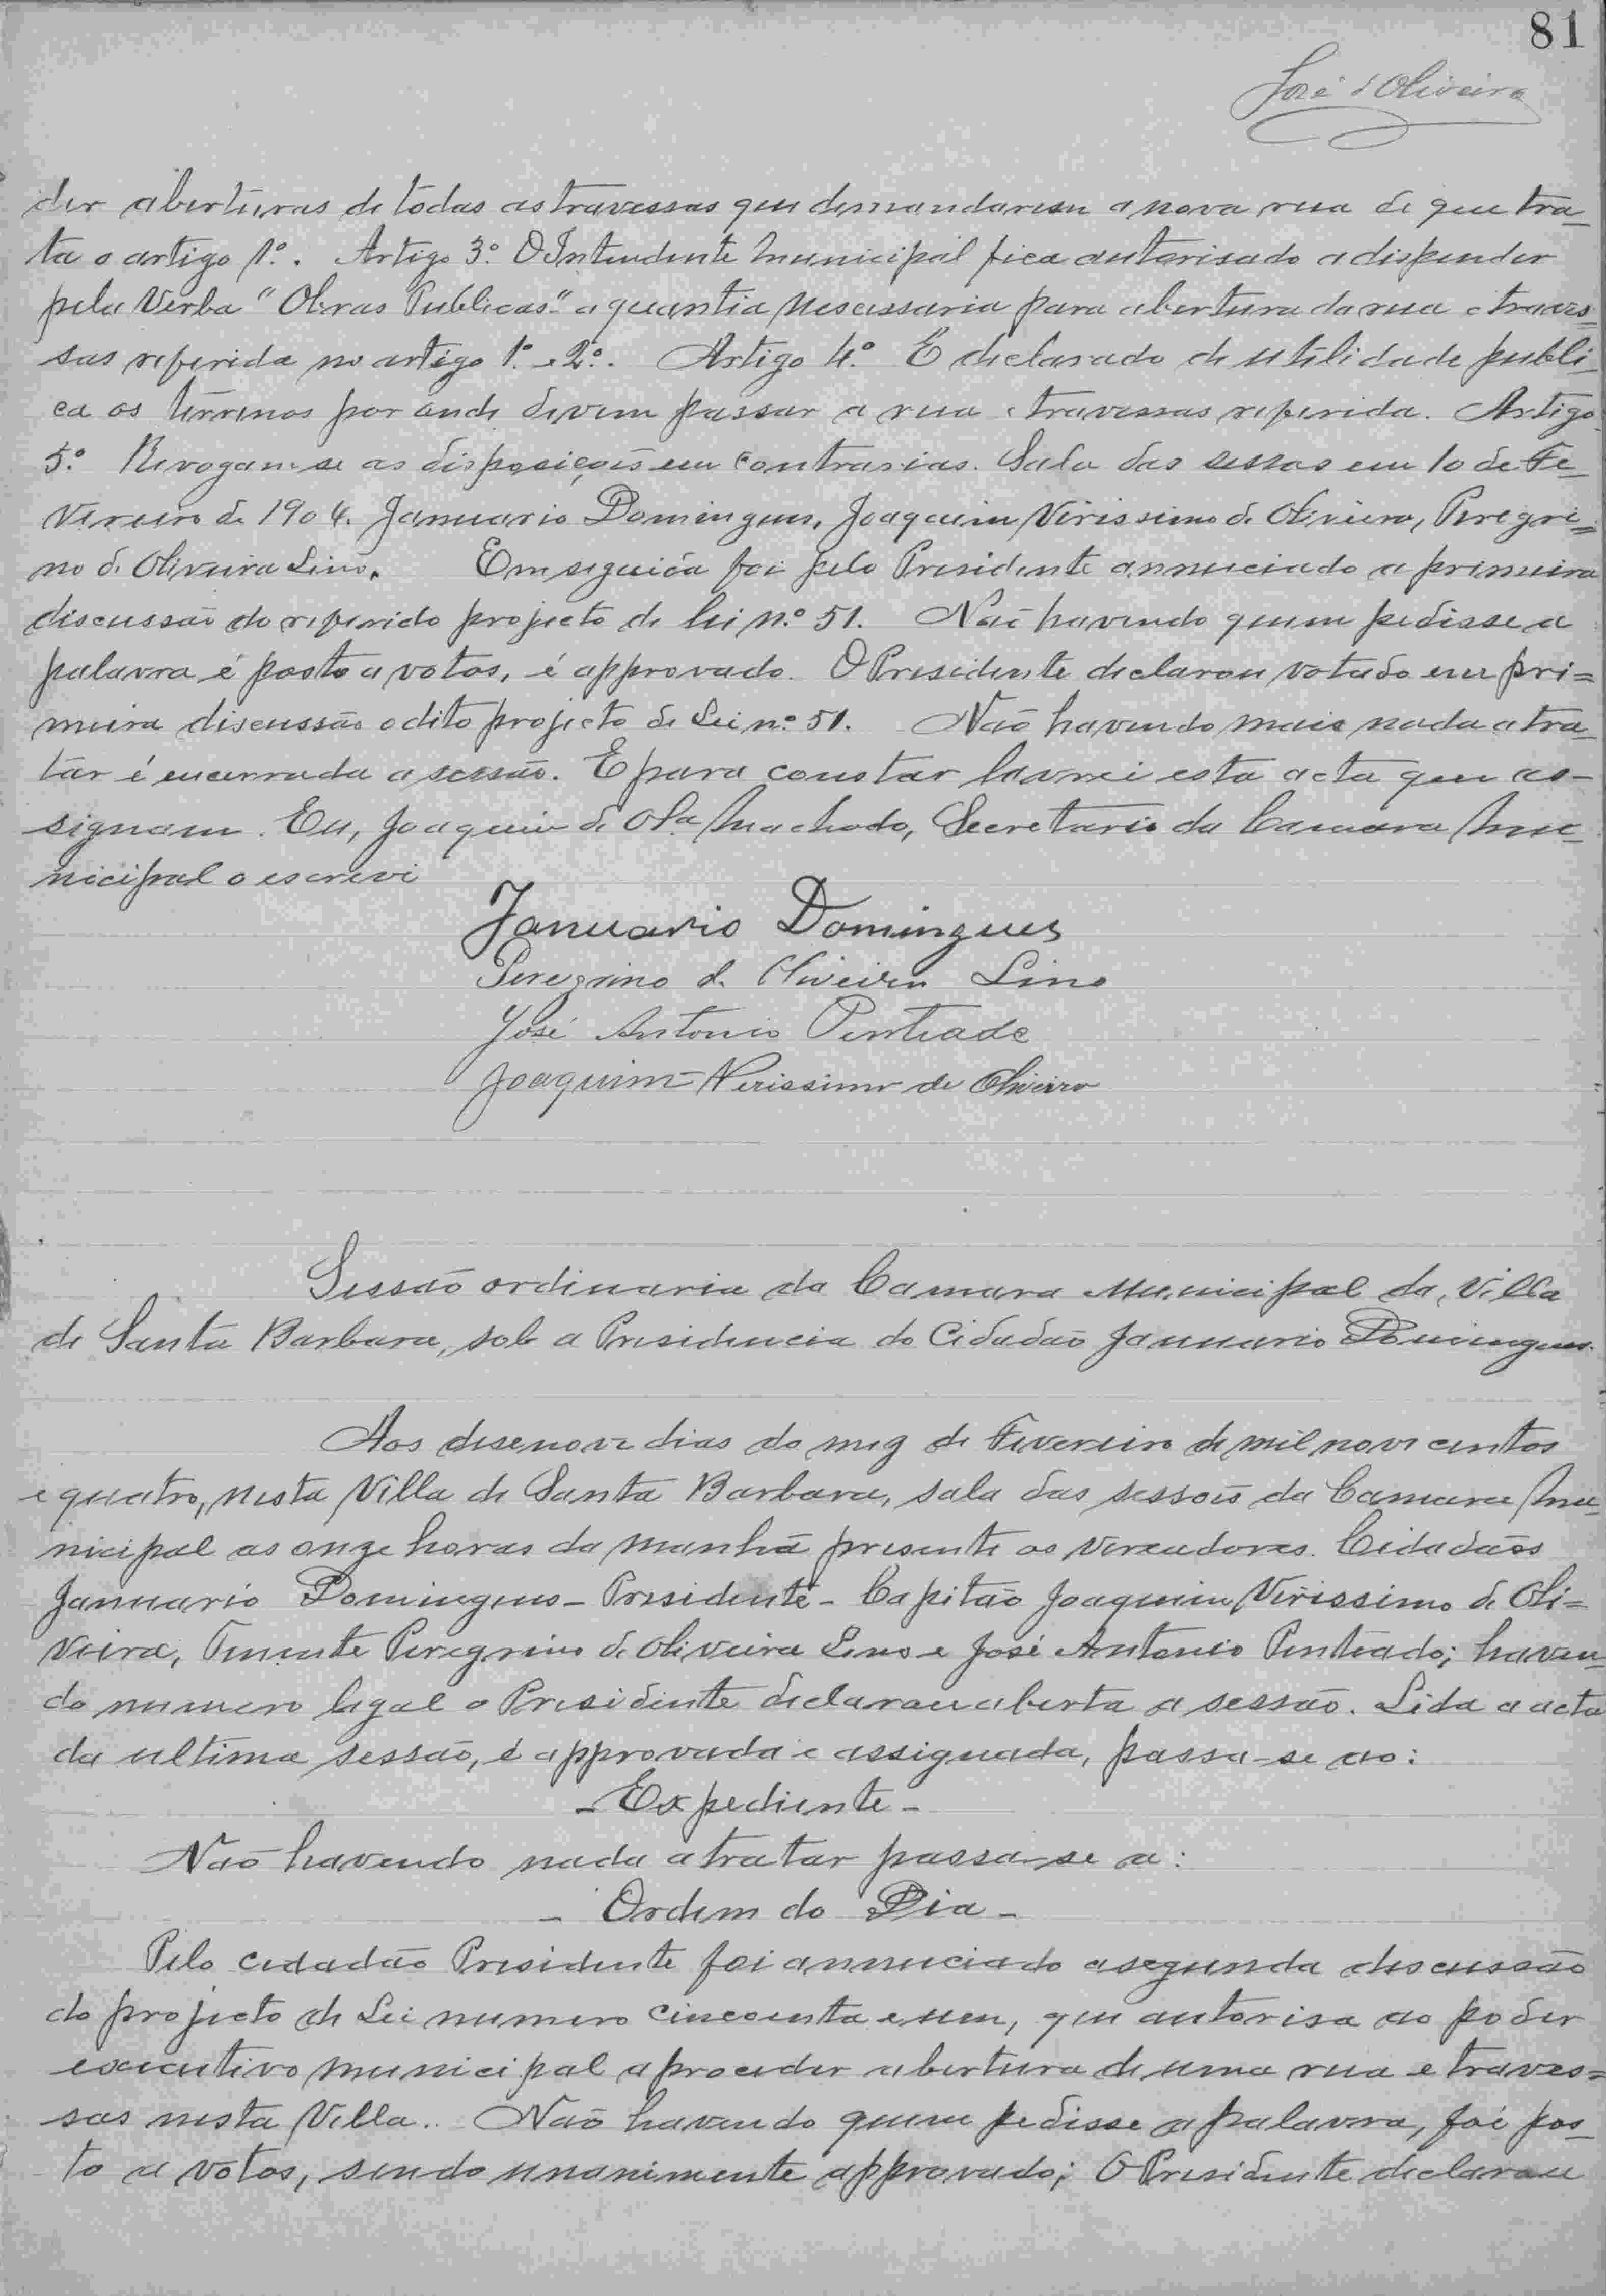 81
José d'Oliveira
der aberturas de todas as travessas que demandarem a nova rua de que tra-
ta o artigo 1º. Artigo 3º. O Intendente Municipal fica autorisado a dispender
pela Verba "Obras Publicas" a quantia nescessaria para abertura da rua e traves-
sas referida no artigo 1º. e 2º. Artigo 4º. É declarado de utilidade publi-
ca os terrenos por onde devem passar a rua e travessas referida. Artigo
5º. Revogam-se as disposições em contrarias. Sala das sessas em 10 de Fe-
vereiro de 1904. Januario Domingues, Joaquim Virissimo de Oliveira, Peregri=
no de Oliveira Lino. Em seguida foi pelo Presidente annuciado a primeira
discussão do referido projecto de lei nº 51. Não havendo quem pedisse a
palavra é posto a votos, é approvado. O Presidente declarou votado em pri=
meira discussão o dito projecto de Lei nº 51. Não havendo mais nada a tra-
tar é encerrada a sessão. E para constar lavrei esta acta que as-
signam. Eu, Joaquim de Olª Machado, Secretario da Camara Mu-
nicipal o escrevi
Januario Domingues
Peregrino de Oliveira Lino
José Antonio Penteado
Joaquim Verissimo de Oliveira
Sessão ordinaria da Camara Municipal da Villa
de Santa Barbara, sob a Presidencia do Cidadão Januario Domingues.
Aos desenove dias do mez de Fevereiro de mil novecentos
e quatro, nesta Villa de Santa Barbara, sala das sessois da Camara Mu-
nicipal as onze horas da manhã presente os vereadores. Cidadãos
Januario Domingues - Presidente - Capitão Joaquim Virissimo de Oli=
veira, Tenente Peregrino de Oliveira Lino e José Antonio Penteado; haven-
do numero legal o Presidente declarou aberta a sessão. Lida a acta
da ultima sessão, é approvada e assignada, passa-se ao:
- Expediente -
Não havendo nada a tratar passa-se a:
- Ordem do Dia -
Pelo cidadão Presidente foi annuciado a segunda discussão
do projecto de Lei numero cincoenta e um, que autorisa ao poder
executivo municipal a proceder abertura de uma rua e traves=
sas nesta Villa.. Não havendo quem pedisse a palavra, foi pos-
to a votos, sendo unanimente approvado; O Presidente declarou